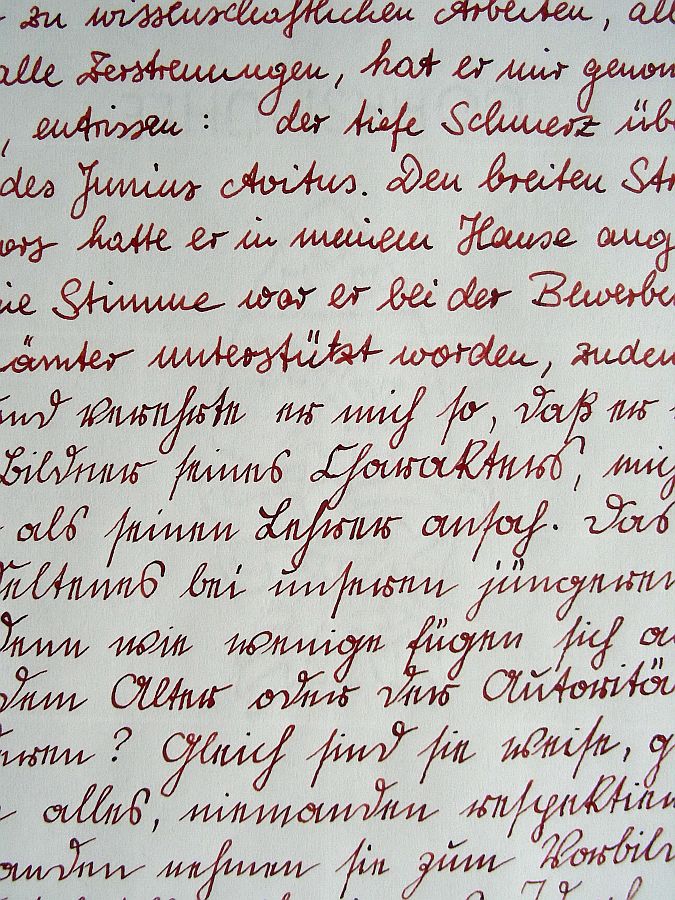 zu wissenschaftlichen Arbeiten, all
alle Zerstreuungen, hat er mir genom
, entrissen: der tiefe Schmerz übe
des Junius Avitus. Den breiten Str
hatte er in meinem Hause ang
ie Stimme war er bei der Bewerbe
ämter unterstützt worden, zudem
und verehrte er mich so, daß er
Bildner seines Charakters, mic
als seinen Lehrer ansah. Das
Seltenes bei unseren jüngeren
denn wie wenige fügen sich a
dem Alter oder der Autoritä
eren? Gleich sind sie weise, g
alles, niemanden respektier
anden nehmen sie zum Vorbil